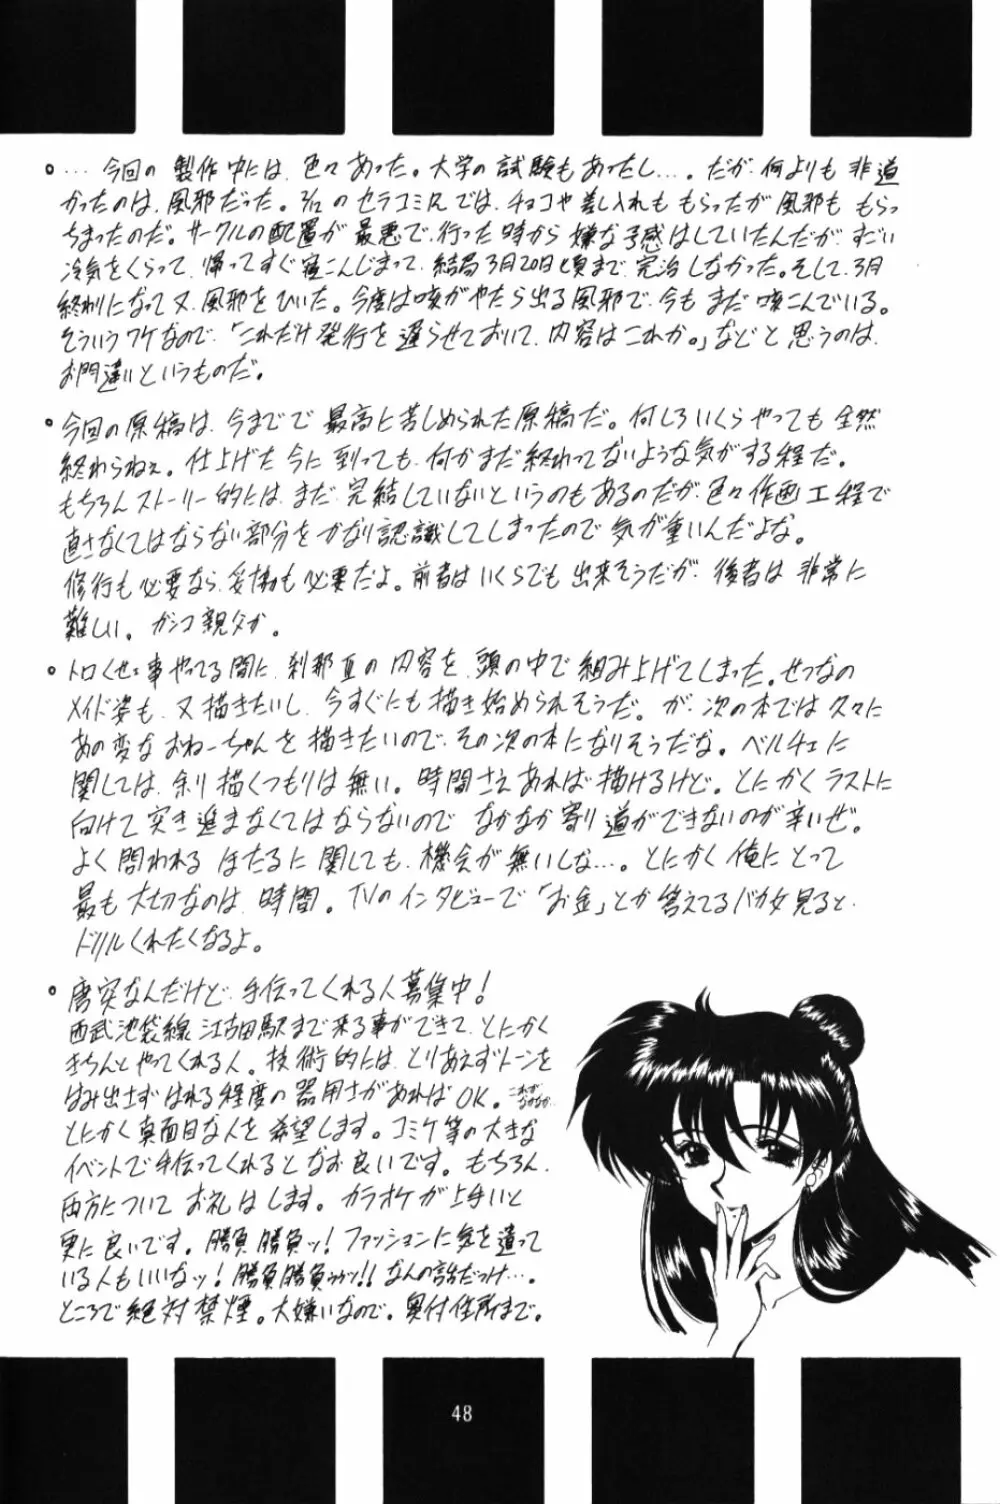 ・…今回の製作中には、色々あった。大学の試験もあったし…。だが、何よりも非道
かったのは、風邪だった。3/12のセラコミ凡では、チョコや差し入れももらったが風邪ももらっ
ちまったのだ。サークルの配置が最悪で、行った時から嫌な予感はしていたんだが、すごい
冷気をくらって、帰ってすぐ寝こんじまって、結局3月20日頃まで完治しなかった。そして、3月
終わりになって又、風邪をひいた。今度は咳がやたら出る風邪で、今もまだ咳こんでいる。
そういうワケなので、「これだけ発行を遅らせておいて、内容はこれか。」などと思うのは、
お門違いというものだ。
・今回の原稿は、今までで最高に苦しめられた原稿だ。何しろいくらやっても全然
終わらねぇ。仕上げた今に到っても、何かまだ終わってないような気がする程だ。
もちろんストーリー的には、まだ完結していないというのもあるのだが、色々作画工程で
直さなくてはならない部分をかなり認識してしまったので気が重いんだよな。
修行も必要なら、妥協も必要だよ。前者はいくらでも出来そうだが、後者は非常に
難しい。ガンコ親父か。
・トロくせェ事やってる間に、刹那Ⅱの内容を、頭の中で組み上げてしまった。せつなの
メイド姿も、又描きたいし、今すぐにも描き始められそうだ。が、次の本では久々に
あの変なおねーちゃんを描きたいので、その次の本になりそうだな。ベルチェに
関しては、余り描くつもりは無い。時間さえあれば描けるけど。とにかくラストに
向けて突き進まなくてはならないので、なかなか寄り道ができないのが辛いぜ。
よく問われるほたるに関しても、機会が無いしな…。とにかく俺にとって
最も大切なのは、時間。TVのインタビューで「お金」とか答えてるバカ女見ると、
ドリルくれたくなるよ。
・唐突なんだけど、手伝ってくれる人募集中！
西武池袋線江古田駅まで来る事ができて、とにかく
きちんとやってくれる人。技術的には、とりあえずトーンを
はみ出さずはれる程度の器用さがあればOK。これがなかなか…
とにかく真面目な人を希望します。コミケ等の大きな
イベントで手伝ってくれるとなお良いです。もちろん、
両方についてお礼はします。カラオケが上手いと
更に良いです。勝負勝負ッ！ファッションに気を遣って
いる人もいいなッ！勝負勝負ゥゥッ!!なんの話だっけ…。
ところで絶対禁煙。大嫌いなので。奥付住所まで。
48